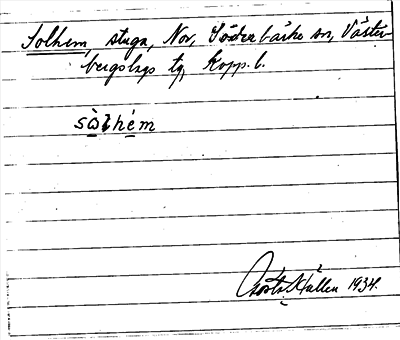 Solhem, stuga, Nor, Söderbärke sn, Väster-
bergslags tg, Kopp. l.
sòlhém
Gösta Hallén 1934.